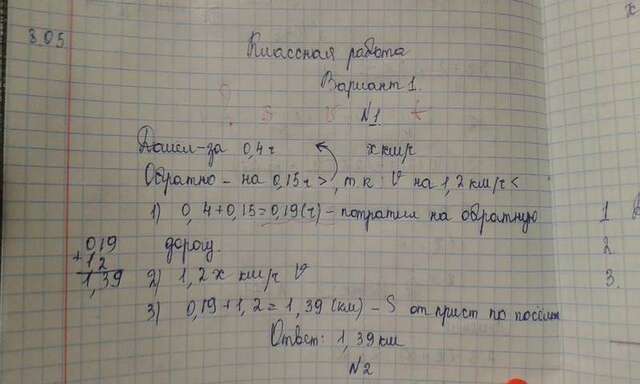 8.05
Классная работа
Вариант 1.
S V t
N1
Дошел-за 0,4ч х км/ч
Обратно - на 0,15ч >, т к V на 1,2 км/ч <
1) 0,4+0,15=0,19(ч) - потратил на обратную
дорогу.
0,19
+1,2
1,39
2) 1,2 х км/ч V
3) 0,19+1,2=1,39 (км) - S от прист до посёлк
Ответ: 1,39 км
N2
1
2
3.